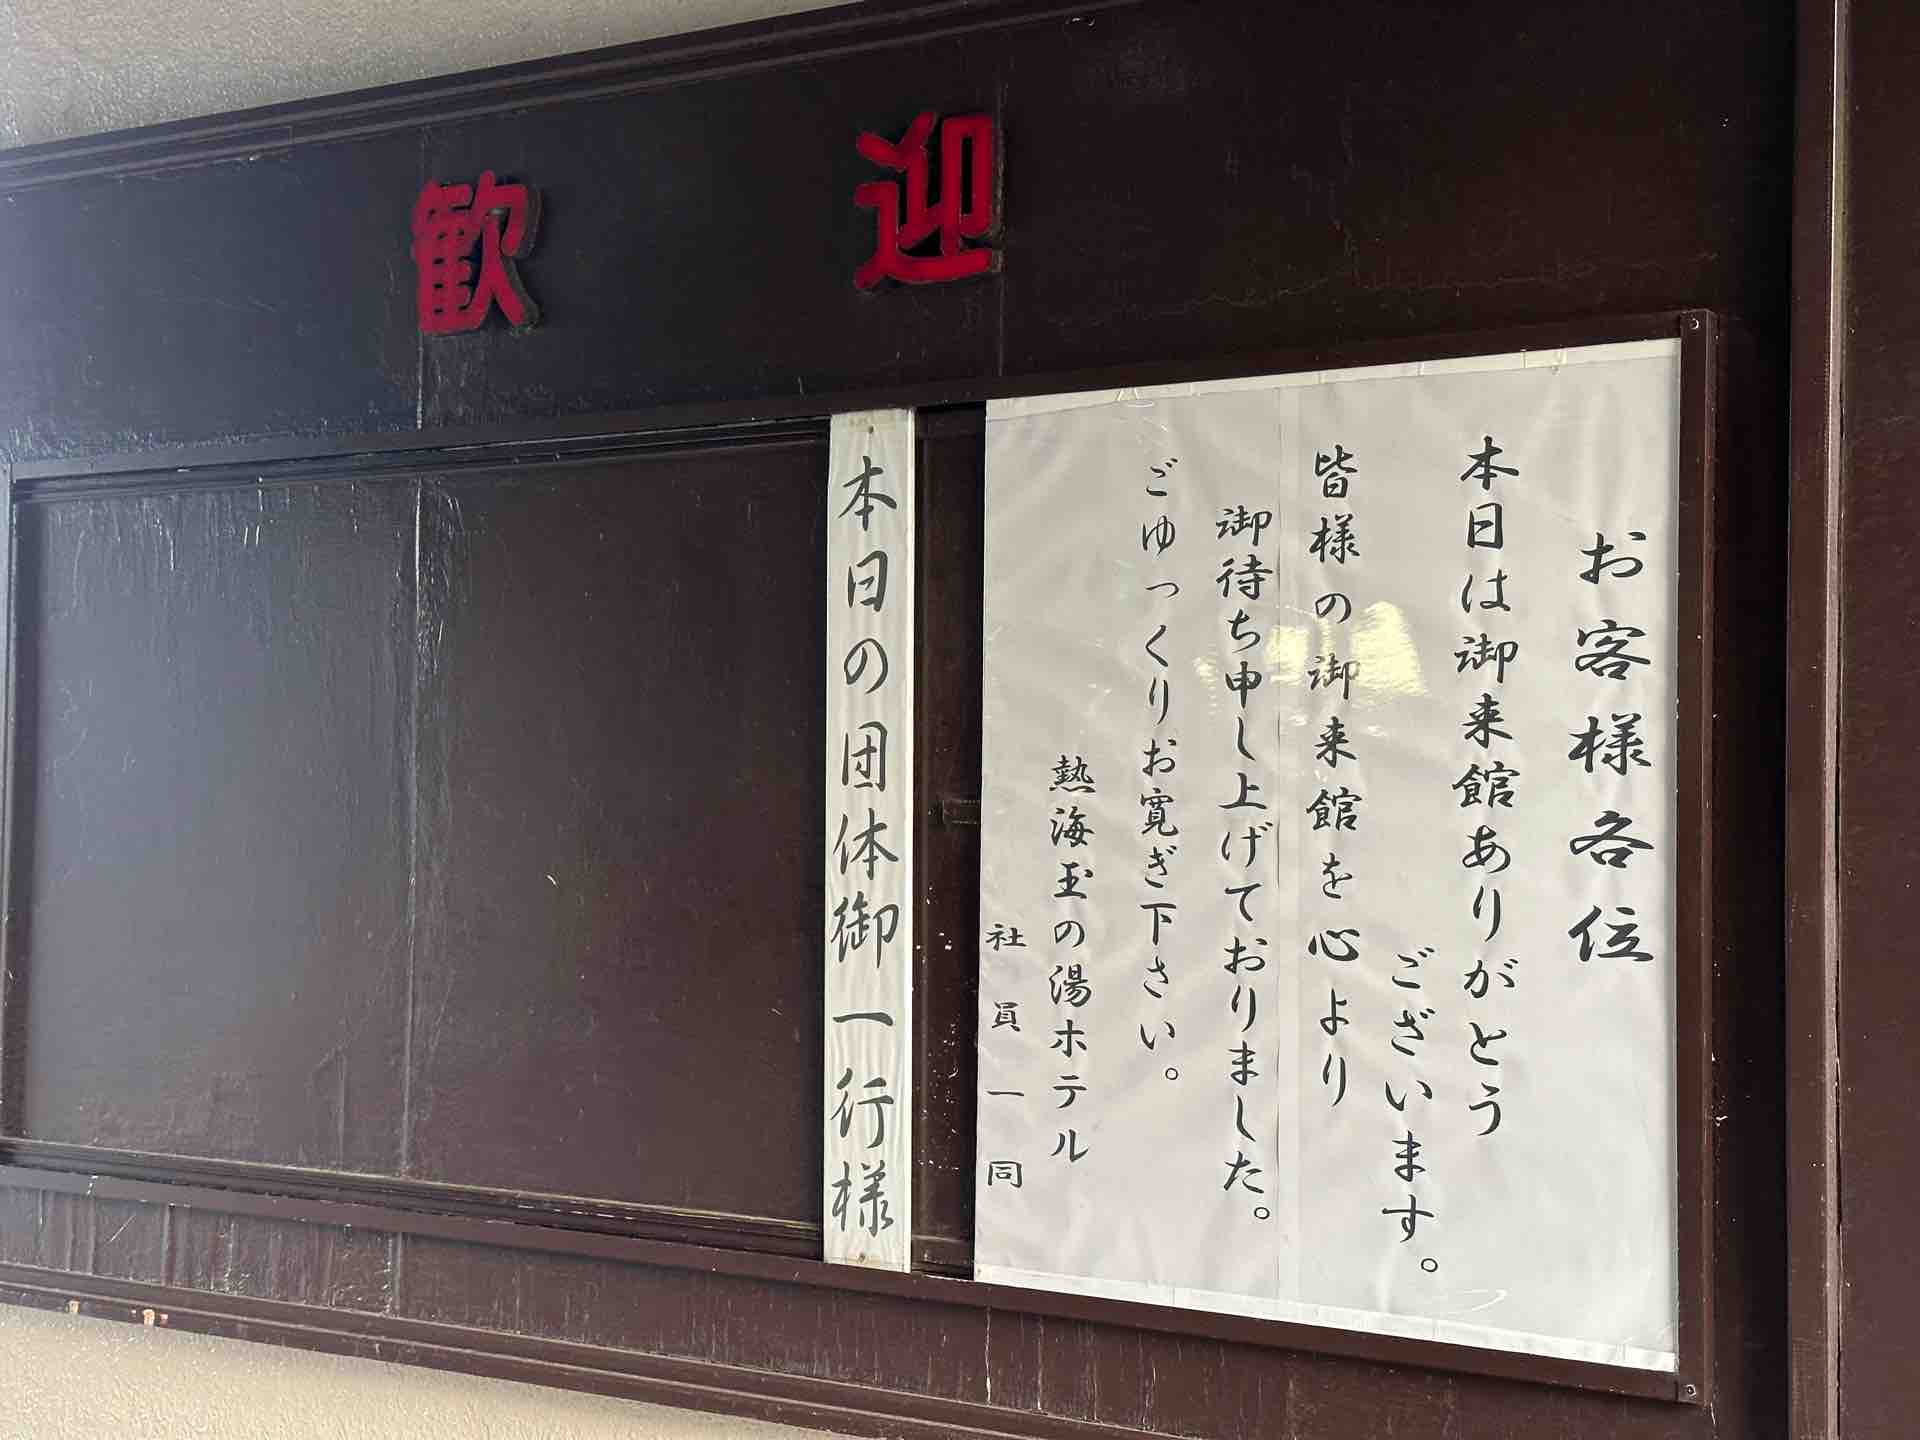 歓迎
お客様各位
本日は御来館ありがとう
ございます。
皆様の御来館を心より
御待ち申し上げておりました。
ごゆっくりお寛ぎ下さい。
熱海玉の湯ホテル
社員一同
本日の団体御一行様